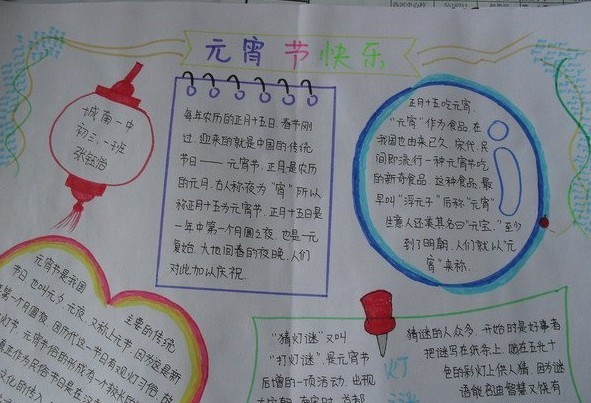 元宵节快乐
城南一中
初三、一班
张钰怡
每年农历的正月十五.春节刚
过.迎来的就是中国的传统
节日——元宵节.正月是农历
的元月.古人称夜为“宵”所以
称正月十五为元宵节.正月十五日是
一年中第一个月圆之夜.也是一元
复始.大地回春的夜晚.人们
对此加以庆祝.
正月十五吃元宵.
“元宵”作为食品.在
我国也由来已久.宋代.民
间即流行一种元宵节吃
的新奇食品.这种食品.最
早叫“浮元子”后称“元宵”
生意人还美其名曰“元宝.”至少
到了明朝.人们就以“元
宵”来称.
元宵节是我国
主要的传统
节日.也叫元夕.元夜.又称上元节.因为这是新
第一个月圆夜.因历代这一节日有观灯习俗.故
灯节.元宵节俗的形成有一个较长的
真正作为民俗节日是在汉
文化的传入
“猜灯谜”又叫
“打灯谜”.是元宵节
后增的一项活动.出现
灯
谜
猜谜的人众多.开始时是好事者
把谜写在纸条上.贴在五光十
色的彩灯上供人猜.因为谜
语能启迪智慧又饶有